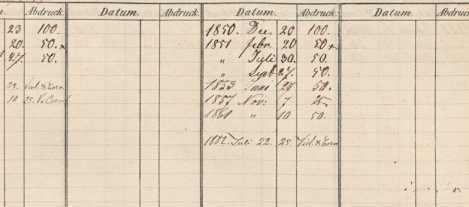 Abdruck. Datum. Abdruck. Datum. Abdruck. Datum. Abdru
23 100. 1850. Dec. 20 100.
20. 50. 1851 febr. 20 50.
27. 50. " Juli 30. 50.
" Sept. 27. 50.
24. 1853 Janr 28 50.
10 25. 1857 Nov. 7 25.
1860 " 10 50.
1882. Juli 22. 25.